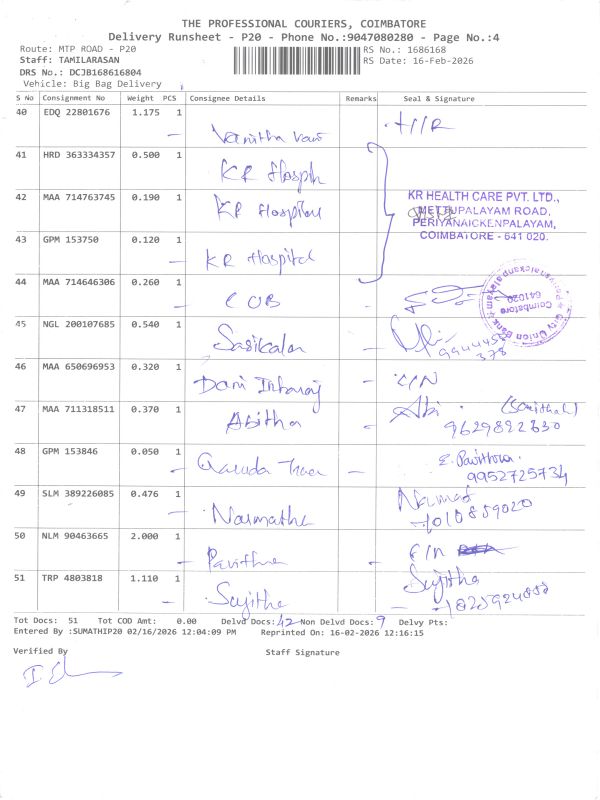 THE PROFESSIONAL COURIERS, COIMBATORE
Delivery Runsheet - P20 - Phone No.:9047080280 - Page No.:4
Route: MTP ROAD - P20 RS No.: 1686168
Staff: TAMILARASAN RS Date: 16-Feb-2026
DRS No.: DCJB168616804
Vehicle: Big Bag Delivery
S No Consignment No Weight PCS Consignee Details Remarks Seal & Signature
40 EDQ 22801676 1.175 1
Vanitha
41 HRD 363334357 0.500 1
KR
42 MAA 714763745 0.190 1
KR Hospital
KR HEALTH CARE PVT. LTD.,
METTUPALAYAM ROAD,
PERIYANAICKENPALAYAM,
COIMBATORE - 641 020.
43 GPM 153750 0.120 1
KR Hospital
44 MAA 714646306 0.260 1
CUB
City Union Bank
Coimbatore
641020
45 NGL 200107685 0.540 1
Sasikala
46 MAA 650696953 0.320 1
Dani
47 MAA 711318511 0.370 1
Abitha Abi
9629822630
48 GPM 153846 0.050 1
E. Pavithra
9952725734
49 SLM 389226085 0.476 1
Narmatha
50 NLM 90463665 2.000 1
51 TRP 4803818 1.110 1
Sujitha Sujitha
Tot Docs: 51 Tot COD Amt: 0.00 Delvd Docs: 42 Non Delvd Docs: 9 Delvy Pts:
Entered By :SUMATHIP20 02/16/2026 12:04:09 PM Reprinted On: 16-02-2026 12:16:15
Verified By Staff Signature